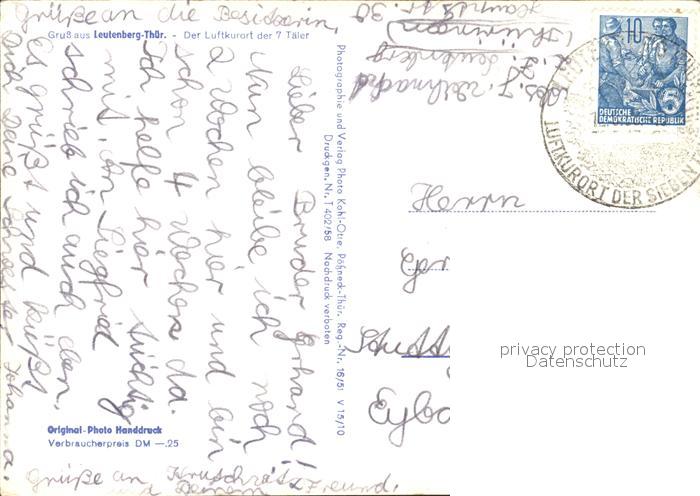 Grüße an die Besitzerin,
Gruß aus Leutenberg-Thür. - Der Luftkurort der 7 Täler
Lieber Bruder Erhard!
Nun bleibe ich noch
2 Wochen hier und bin
schon 4 Wochen da.
Ich helfe hier tüchtig
mit. An Siegfried
schrieb ich auch den.
Es grüßt und küßt
Dich Deine Schwester Johanna.
Grüße an
und Deinen Freund.
Original-Photo Handdruck
Verbraucherpreis DM —.25
Photographie und Verlag Photo Kohl-Otte, Pößneck-Thür. Reg.-Nr. 16/51 V 15/10
Druckgen. Nr. T 402/58 Nachdruck verboten
Abs. J. Weihnacht
z. Z. Leutenberg
(Thüringen)
Hauptstr. 30
10
5
DEUTSCHE
DEMOKRATISCHE REPUBLIK
LUFTKURORT DER SIEBEN
Herrn
privacy protection
Datenschutz